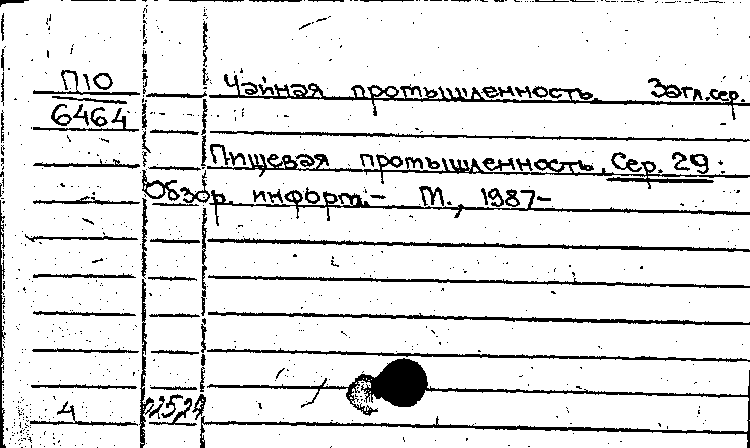 П10 Чайная промышленность. Загл.сер.
6464
Пищевая промышленность. Сер. 29:
Обзор. информ.- М., 1987-
4